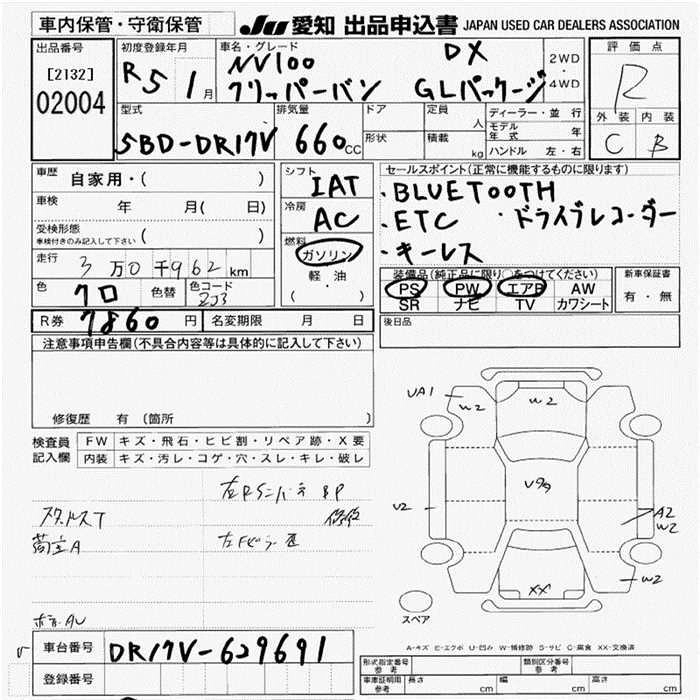 車内保管・守衛保管 JU 愛知 出品申込書 JAPAN USED CAR DEALERS ASSOCIATION
出品番号 初度登録年月 車名・グレード DX 2WD・4WD 評価点
[2132] R5 1月 NV100
02004 クリッパーバン GLパッケージ R
型式 排気量 ドア 定員 人 ディーラー・並行 外装 内装
5BD-DR17V 660cc 形状 積載 kg モデル年式 年 C B
ハンドル 左・右
車歴 自家用・( ) シフト IAT セールスポイント(正常に機能するものに限ります)
車検 年 月( 日) 冷房 AC ・BLUETOOTH
受検形態 ( ) ・ETC ・ドライブレコーダー
車検付きのみ記入して下さい 燃料 ガソリン ・キーレス
走行 3万0千962km 軽・油 装備品(純正品に限り○をつけてください) 新車保証書
色 クロ 色替 色コード ZJ3 ( ) PS PW エアB AW 有・無
SR ナビ TV カワシート
R券 7860円 名変期限 月 日 後日品
注意事項申告欄(不具合内容等は具体的に記入して下さい)
修復歴 有 (箇所 )
検査員 FW キズ・飛石・ヒビ割・リペア跡・X要
記入欄 内装 キズ・汚レ・コゲ・穴・スレ・キレ・破レ
UA1 W2 W2
U2 A2
W2
W2
XX
スペア
車台番号 DR17V-629691
登録番号
A-キズ E-エクボ U-凹み W-補修跡 S-サビ C-腐食 XX-交換済
形式指定番号 参考 類別区分番号 参考
車庫証明用 参考 長さ cm 幅 cm 高さ cm